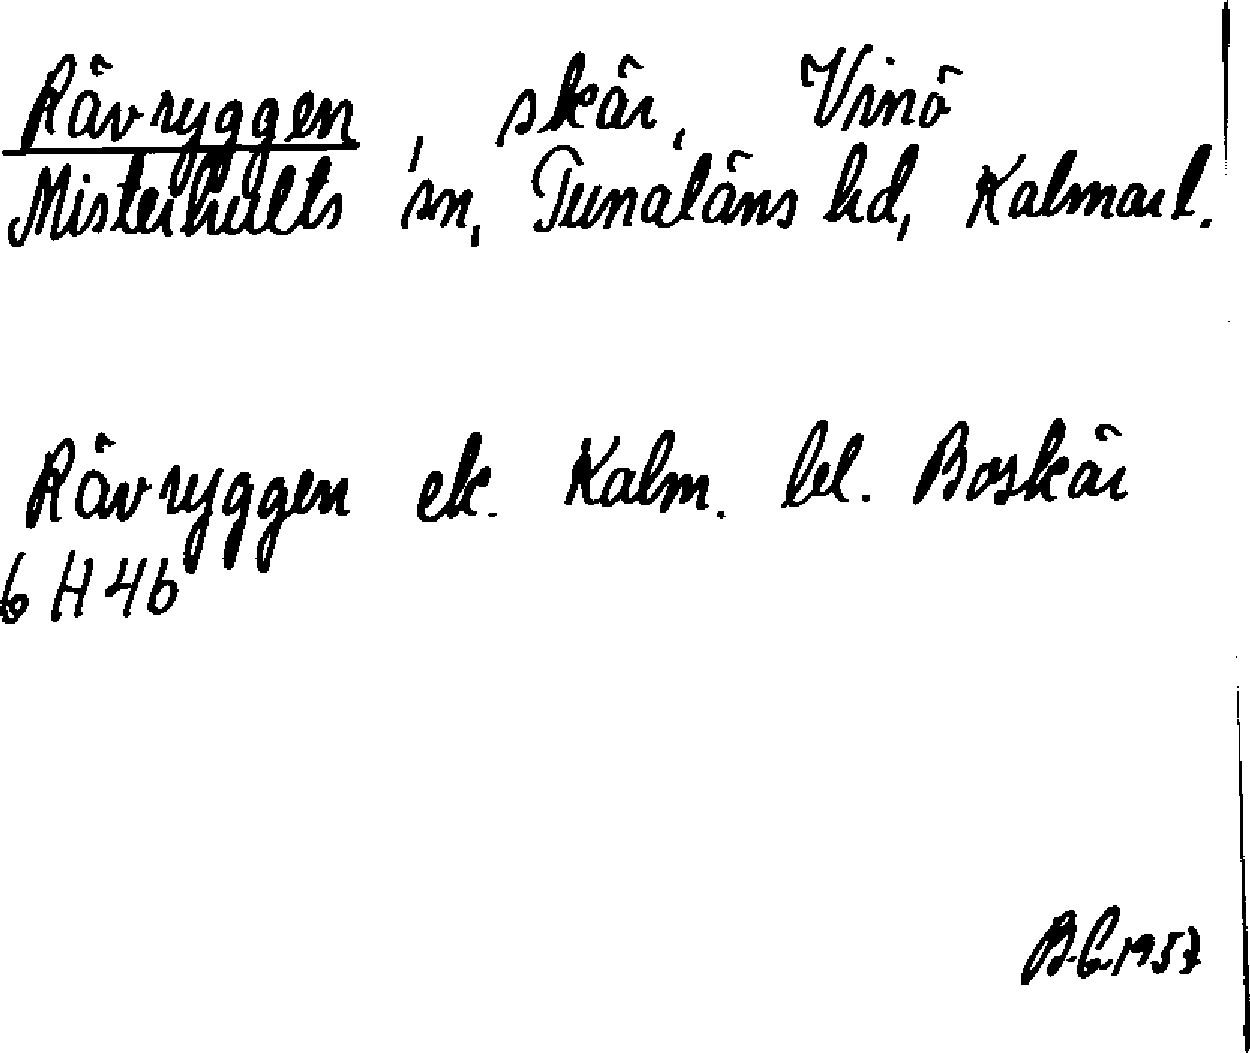 Rävryggen, skär, Vinö
Misterhults sn, Tunaläns hd, Kalmar l.
Rävryggen ek. Kalm. bl. Boskär
6 H 4b
1957